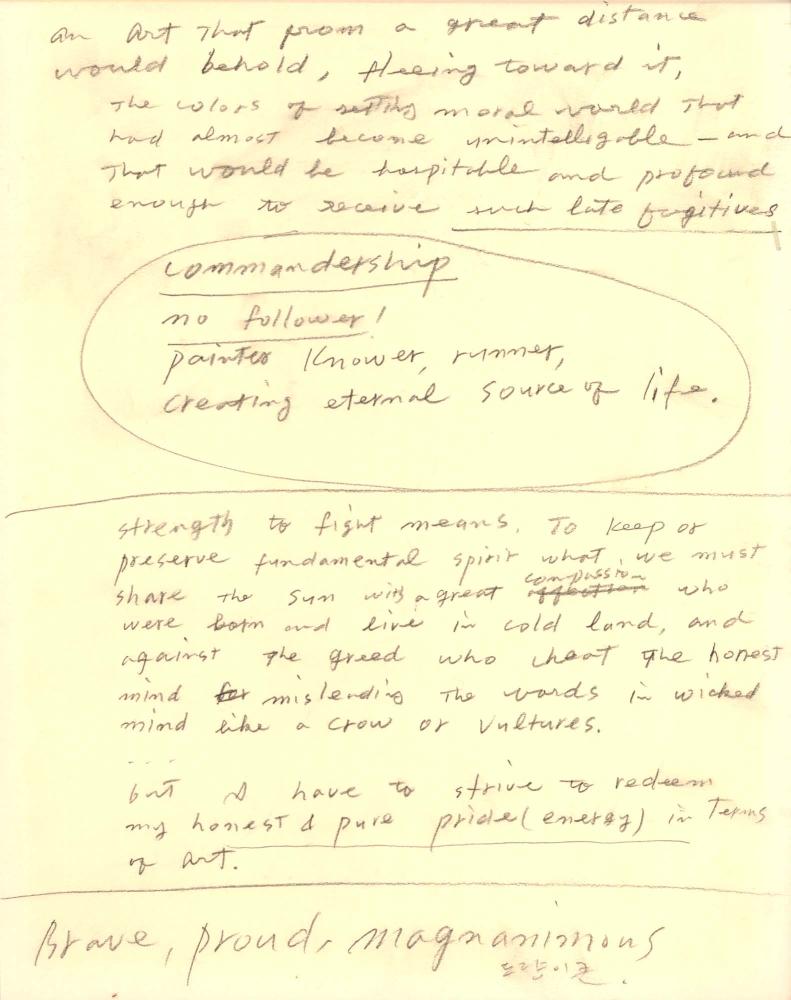 an Art That from a great distance
would behold, fleeing toward it,
The colors of setting moral world That
had almost become unintelligable – and
That would be hospitable and profound
enough to receive such late fugitives
commandership
no follower!
painter Knower, runner,
creating eternal source of life.
strength to fight means. To keep or
preserve fundamental spirit what, we must
compassion
share The Sun with a great affection who
were born and live in cold land, and
against The greed who cheat The honest
mind for misleading The words in wicked
mind like a crow or vultures.
...
but I have to strive to redeem
my honest & pure pride (energy) in Terms
of art.
Brave, proud, magnanimous